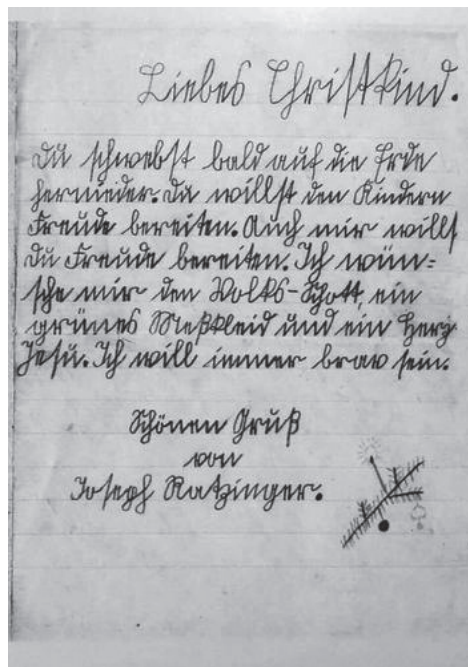 Liebes Christkind.
Du schwebst bald auf die Erde
hernieder. Da willst den Kindern
Freude bereiten. Auch mir willst
Du Freude bereiten. Ich wün=
sche mir den Volks-Schott, ein
grünes Meßkleid und ein Herz
Jesu. Ich will immer brav sein.
Schönen Gruß
von
Joseph Ratzinger.